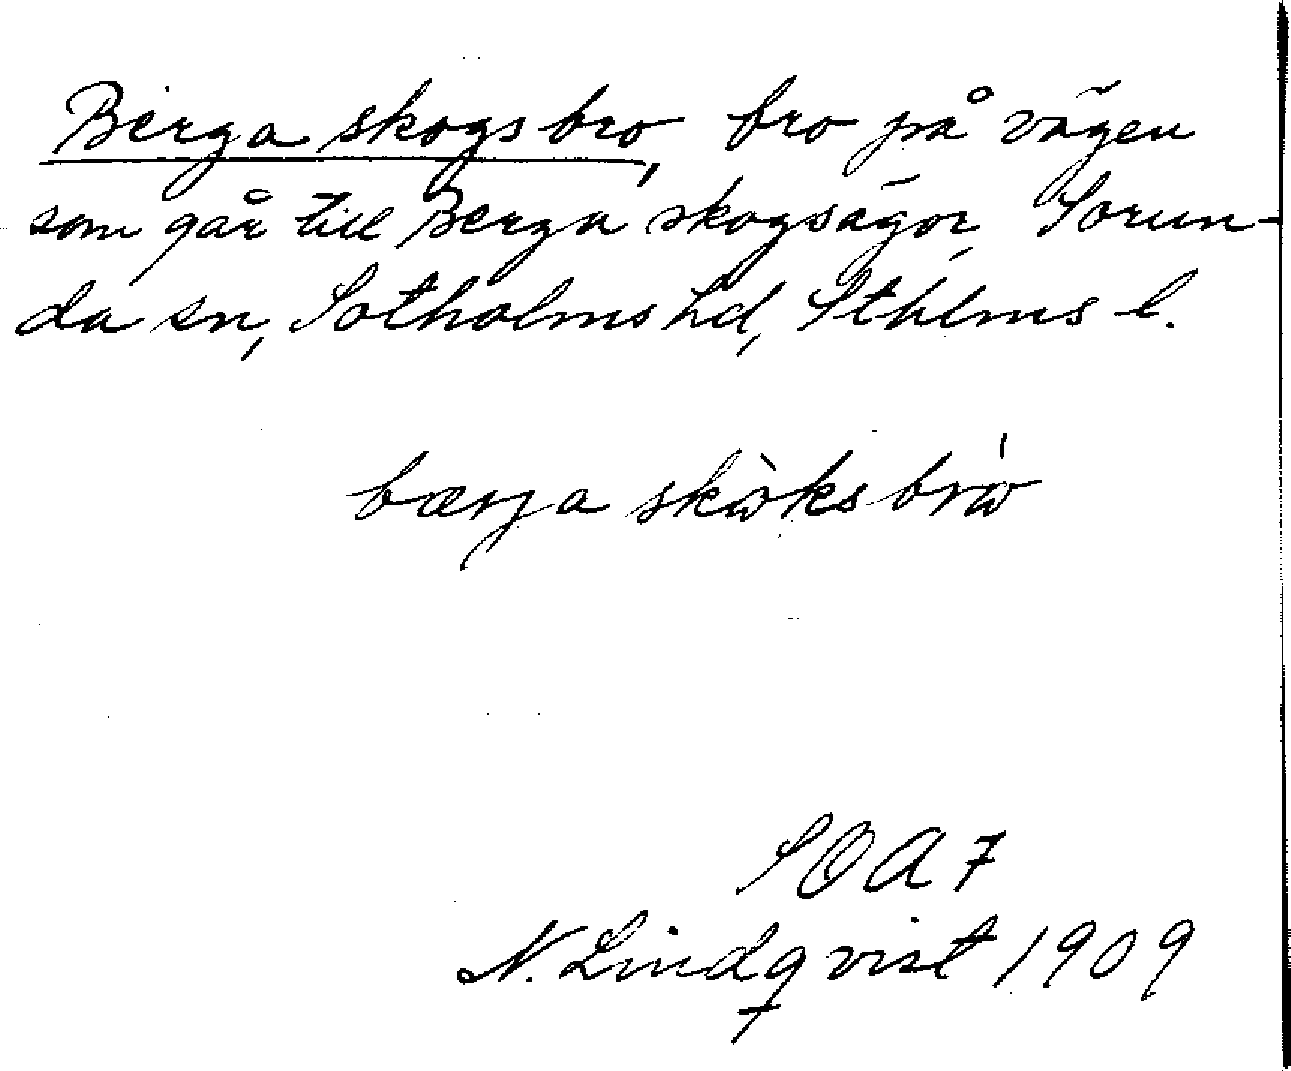 Berga skogsbro, bro på vägen
som går till Berga skogsägor, Sorun-
da sn, Sotholms hd, Sthlms l.
bærja skὼksbrώ
SOA 7
N. Lindqvist 1909